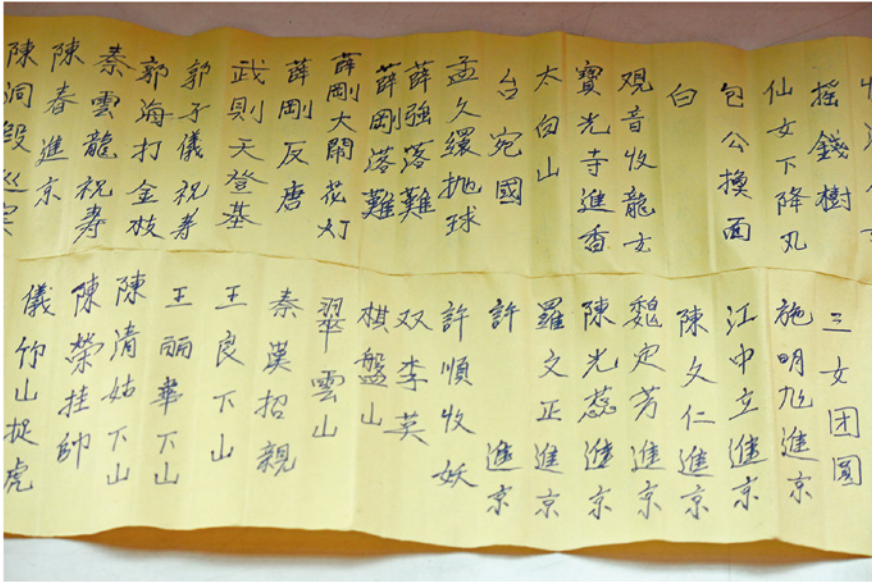 搖錢樹
仙女下降丸
包公換面
白
观音收龍女
寶光寺進香
太白山
台宛國
孟久繯抛球
薛強落難
薛剛落難
薛剛大鬧花灯
薛剛反唐
武則天登基
郭子儀祝寿
郭海打金枝
秦雲龍祝寿
陳春進京
陳洞
三女团圓
施明旭進京
江中立進京
陳文仁進京
魏定芳進京
陳光蕊進京
羅文正進京
許 進京
許順收妖
双李英
棋盤山
翠雲山
秦漢招親
王良下山
王丽華下山
陳清姑下山
陳榮挂帥
儀竹山捉虎